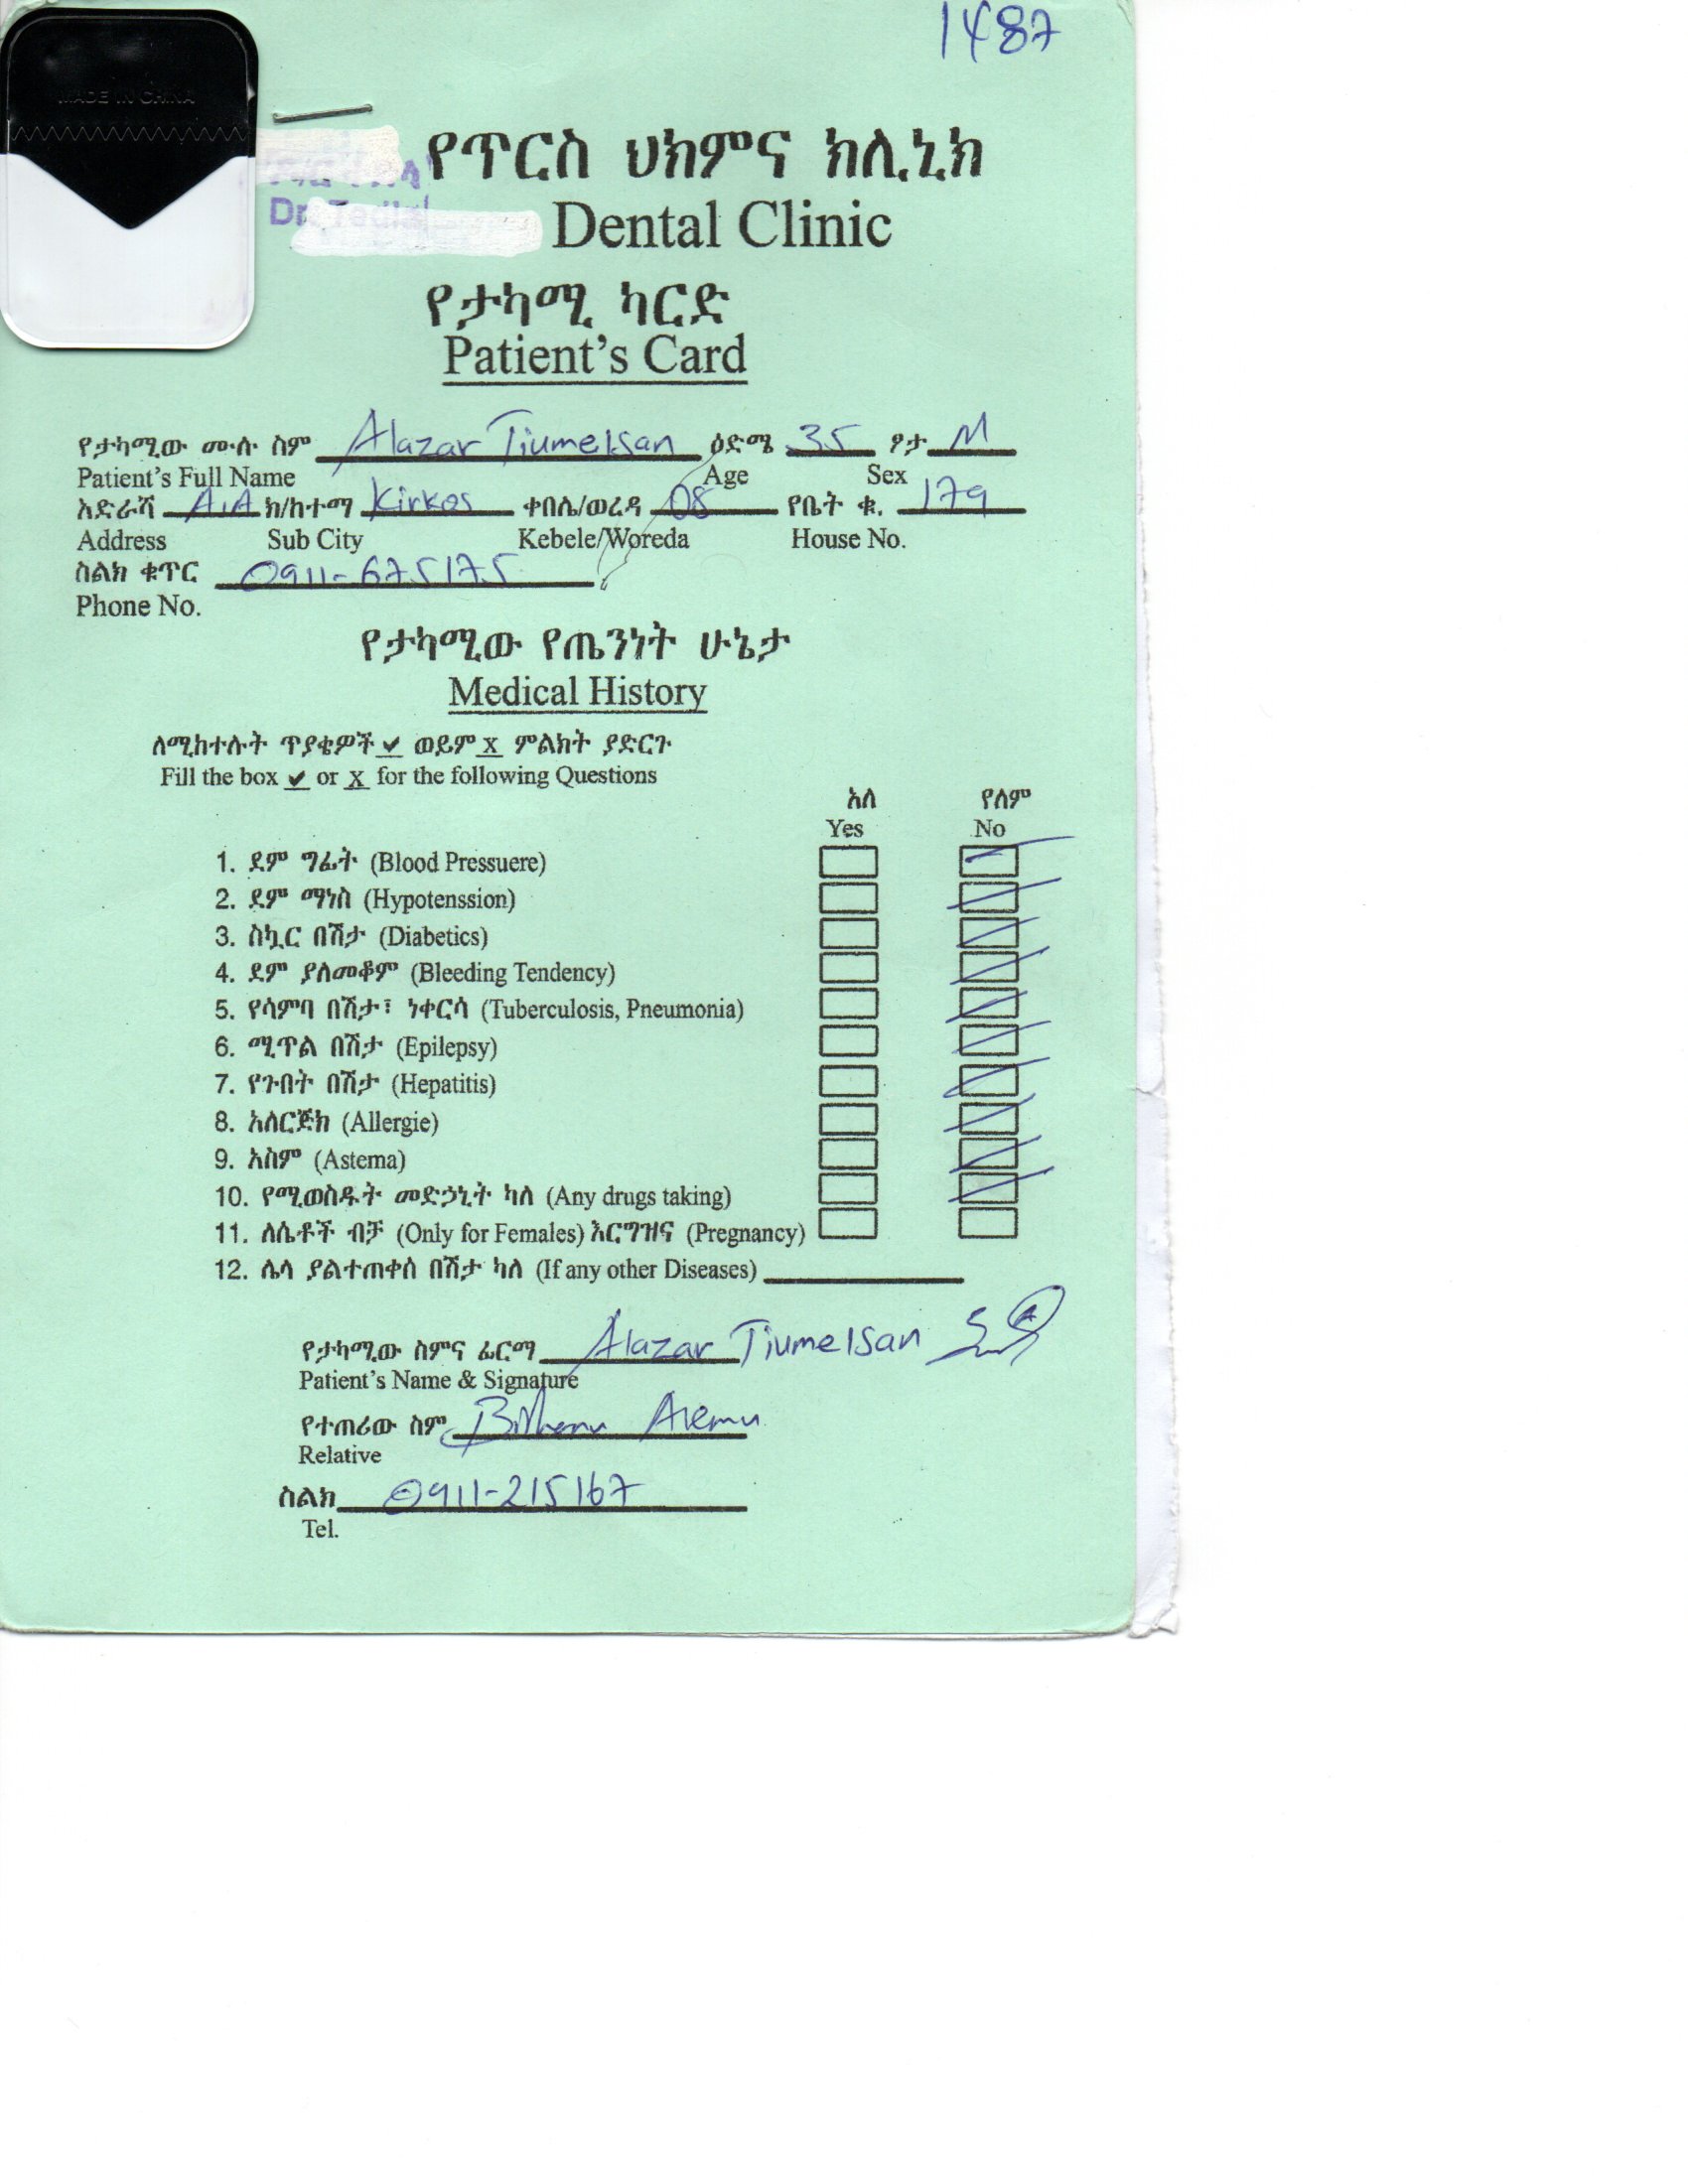 1487
MADE IN CHINA
የጥርስ ህክምና ክሊኒክ
Dr. Dental Clinic
የታካሚ ካርድ
Patient's Card
የታካሚው ሙሉ ስም Alazar Tiumelsan ዕድሜ 35 ፆታ M
Patient's Full Name Age Sex
አድራሻ A.A ክ/ከተማ Kirkos ቀበሌ/ወረዳ 08 የቤት ቁ. 179
Address Sub City Kebele/Woreda House No.
ስልክ ቁጥር 0911-675175
Phone No.
የታካሚው የጤንነት ሁኔታ
Medical History
ለሚከተሉት ጥያቄዎች ✔ ወይም x ምልክት ያድርጉ
Fill the box ✔ or x for the following Questions
አለ የለም
Yes No
1. ደም ግፊት (Blood Pressuere)
2. ደም ማነስ (Hypotenssion)
3. ስኳር በሽታ (Diabetics)
4. ደም ያለመቆም (Bleeding Tendency)
5. የሳምባ በሽታ፣ ነቀርሳ (Tuberculosis, Pneumonia)
6. ሚጥል በሽታ (Epilepsy)
7. የጉበት በሽታ (Hepatitis)
8. አለርጅክ (Allergie)
9. አስም (Astema)
10. የሚወስዱት መድኃኒት ካለ (Any drugs taking)
11. ለሴቶች ብቻ (Only for Females) እርግዝና (Pregnancy)
12. ሌላ ያልተጠቀሰ በሽታ ካለ (If any other Diseases)
የታካሚው ስምና ፊርማ Alazar Tiumelsan
Patient's Name & Signature
የተጠሪው ስም Alemu
Relative
ስልክ 0911-215167
Tel.